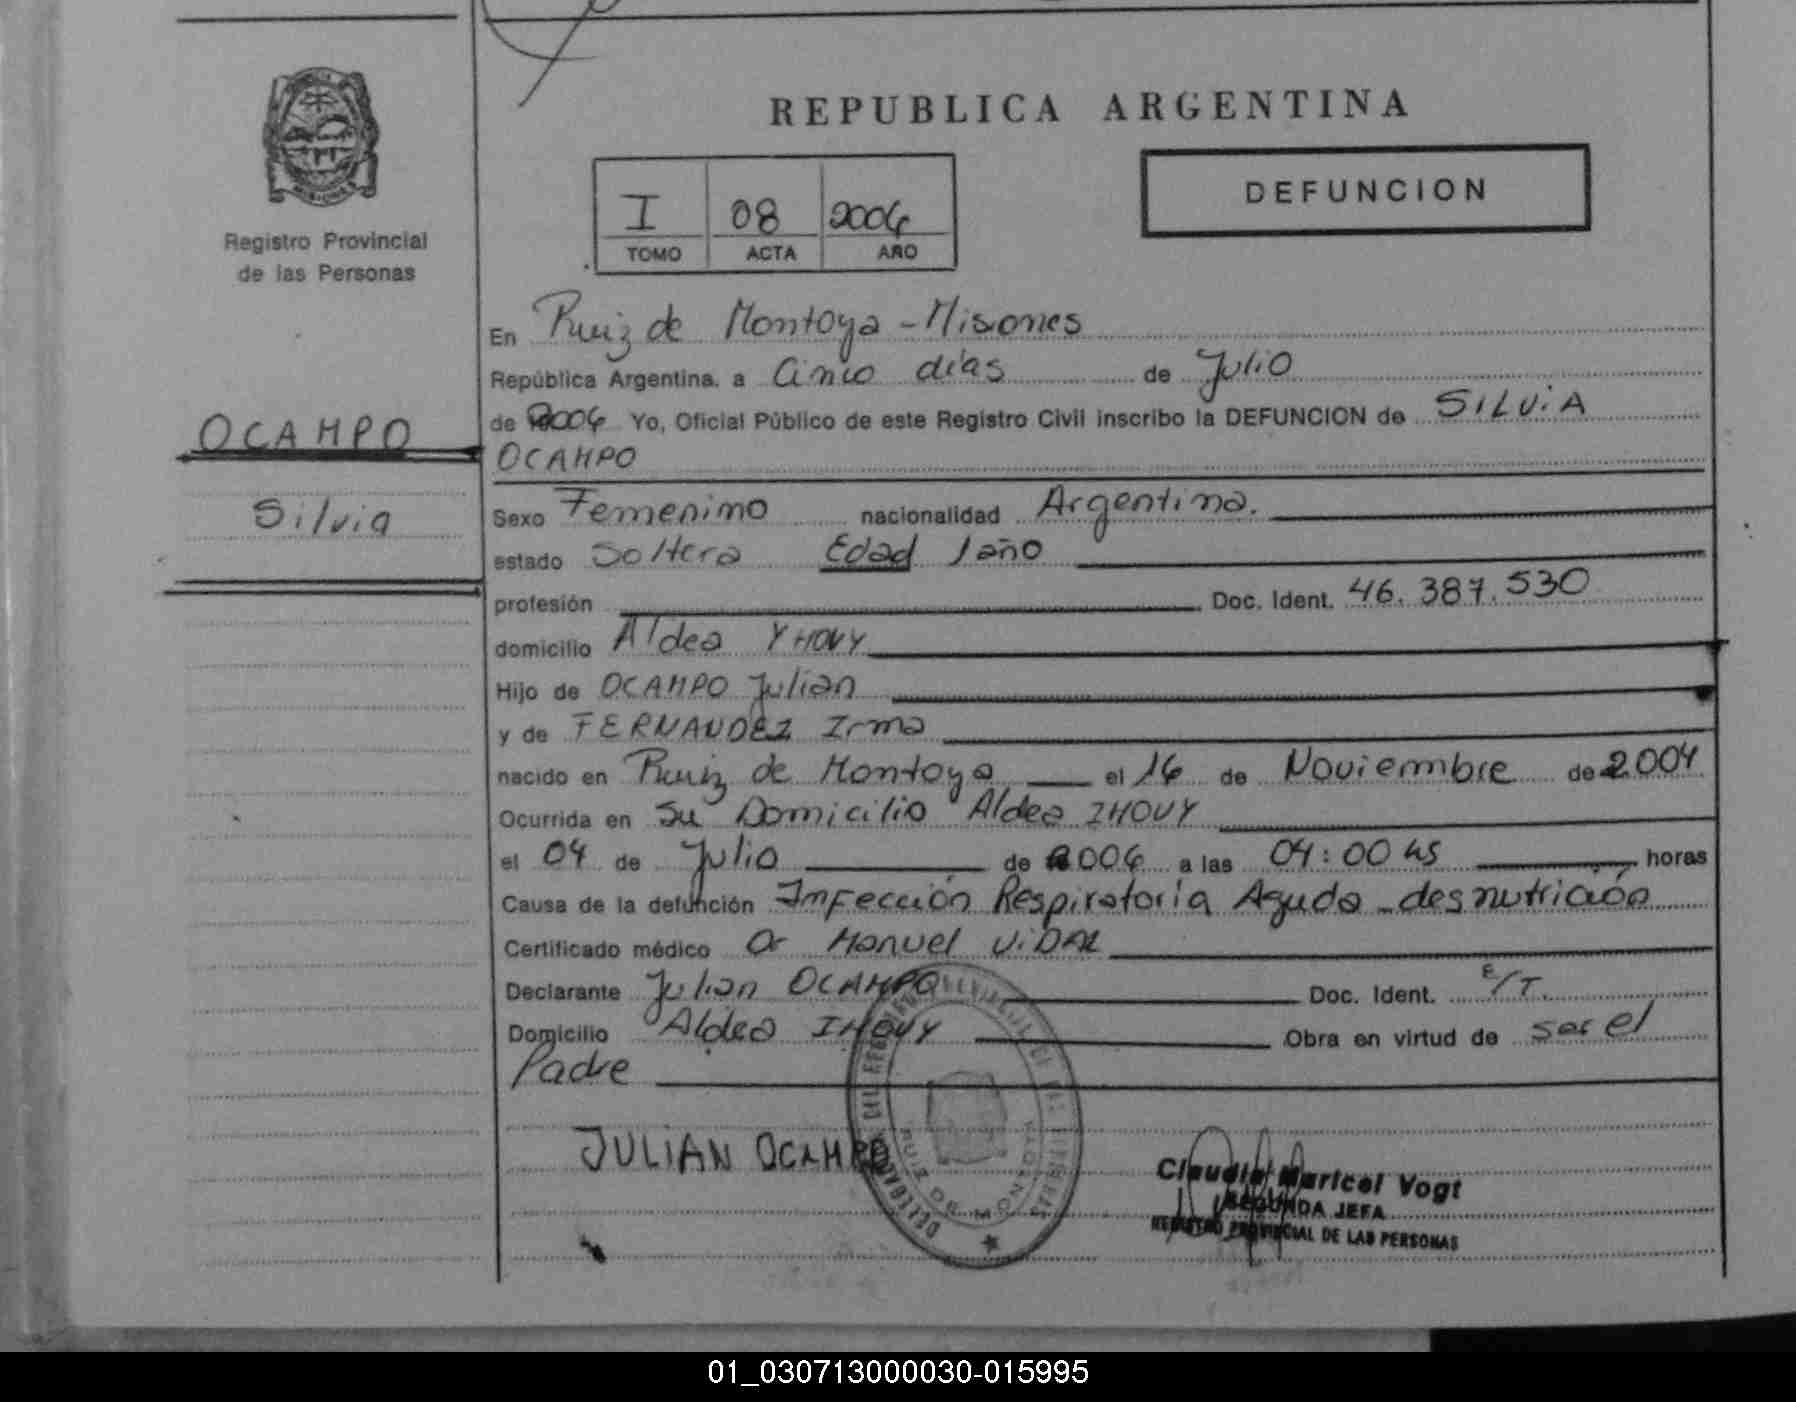 REPUBLICA ARGENTINA
DEFUNCION
I 08 2006
TOMO ACTA AÑO
Registro Provincial
de las Personas
OCAMPO
Silvia
En Ruiz de Montoya - Misiones
República Argentina. a Cinco días de Julio
de 2006 Yo, Oficial Público de este Registro Civil inscribo la DEFUNCION de SILVIA
OCAMPO
Sexo Femenino nacionalidad Argentina.
estado Soltera Edad 1 año
profesión Doc. Ident. 46.387.530
domicilio Aldea YHOVY
Hijo de OCAMPO Julian
y de FERNANDEZ Irma
nacido en Ruiz de Montoya el 16 de Noviembre de 2004
Ocurrida en Su Domicilio Aldea IHOVY
el 04 de Julio de 2006 a las 04:00 hs horas
Causa de la defunción Infección Respiratoria Aguda - desnutrición
Certificado médico Dr Manuel ViDAL
Declarante Julian OCAMPO Doc. Ident. E/T.
Domicilio Aldea IHOVY Obra en virtud de ser el
Padre
JULIAN OCAMPO
RUIZ DE MONTOYA
Claudia Maricel Vogt
SEGUNDA JEFA
REGISTRO PROVINCIAL DE LAS PERSONAS
01_030713000030-015995